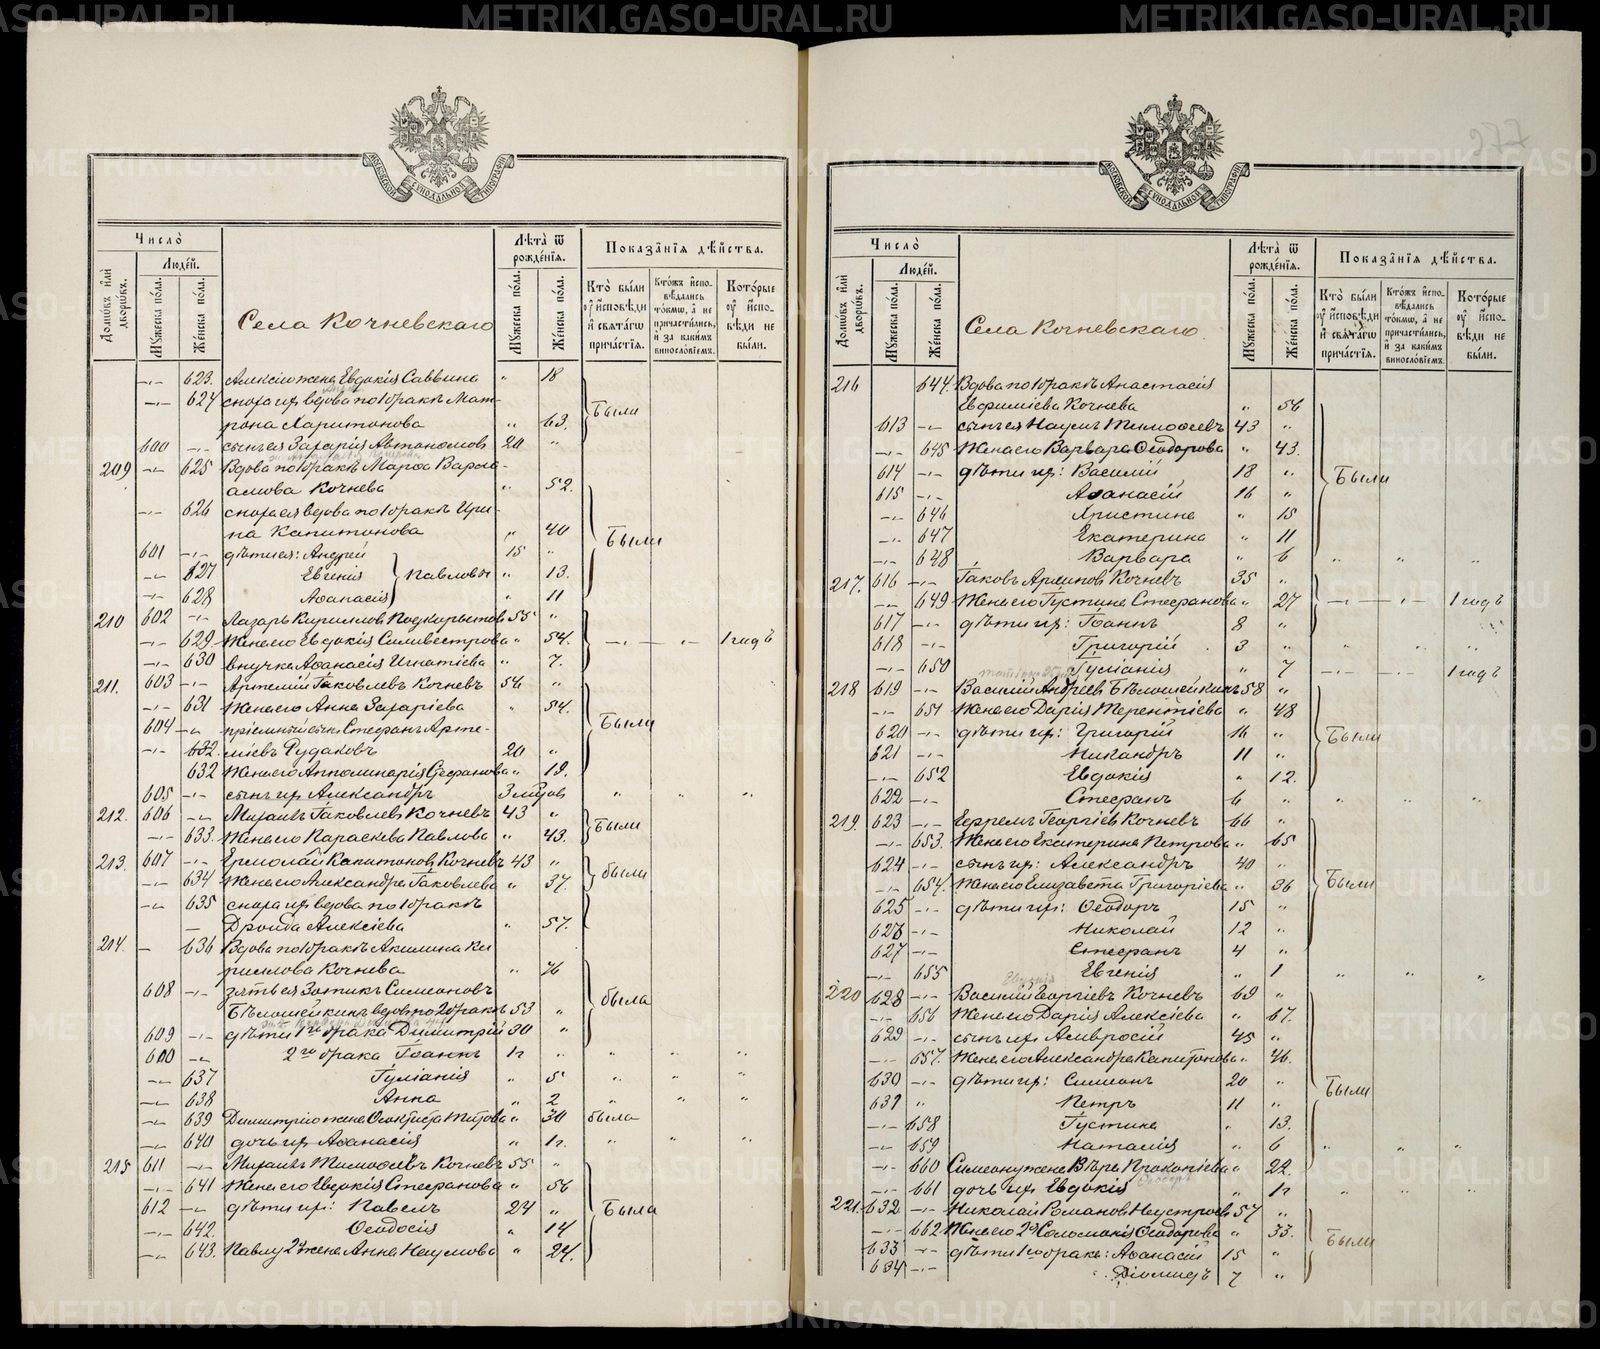 METRIKI.GASO-URAL.RU
277
МОСКОВСКОЙ СѴНОДАЛЬНОЙ ТИПОГРАФІИ
Число̀
Людéй.
Домѡвъ и҆лѝ дворѡвъ.
Мꙋжеска пола.
Жéнска пóла.
Села Кочневскаго
Лѣта̀ ѿ рождéнїѧ.
Мꙋжеска пóла.
Жéнска пóла.
Показа̑нїѧ дѣ́йства.
Кто̀ бы́ли ᲂу҆ и҆сповѣди и҆ свѧта́гѡ прича́стїѧ.
Кто́жъ и҆спо-вѣдались то́кмѡ, а҆ не причастились, и҆ за каки́мъ винослóвїемъ.
Котóрые ᲂу҆ и҆спо-вѣди не бы́ли.
—„— 623. Алексѣю жена Евдокія Саввина „ 18
—„— 624 сноха их вдова по 1 бракѣ Мат-
рона Харитонова „ 63. Были
600 —„— сынъ ея Захарія Автономов 20 „
209 —„— 625 Вдова по 1 бракѣ Марфа Варла-
амова Кочнева „ 52.
—„— 626 сноха ея вдова по 1 бракѣ Ири-
на Капитонова „ 40 Были
601 —„— дѣти ея: Андрей 15 „
—„— 627 Евгенія Павловы „ 13.
—„— 628 Афанасія „ 11
210 602 —„— Лазарь Кириллов Подкорытов 55 „
—„— 629 Жена его Евдокія Силивестрова „ 54. —„— —„— 1 годъ
—„— 630 внучка Афанасія Игнатіева „ 7.
211. 603 —„— Артемій Іаковлевъ Кочневъ 56 „
—„— 631 Жена его Анна Захаріева „ 54.
604 —„— пріемный сынъ Стефанъ Арте- Были
—„— міевъ Рудаковъ 20 „
632 Жена его Апполинарія Стефанова „ 19.
605 —„— сынъ их Александръ 3 мѣсяц „ „ „ „
212. 606 —„— Михаилъ Іаковлевъ Кочневъ 43 „
—„— 633. Жена его Параскева Павлова „ 43. Были
213. 607 —„— Ермолай Капитоновъ Кочневъ 43 „
—„— 634 Жена его Александра Іаковлева „ 37. были
—„— 635 сноха их вдова по 1 бракѣ
Дроида Алексіева „ 57.
214. — 636 Вдова по 1 бракѣ Акилина Ки-
риллова Кочнева „ 76
608 —„— зять ея Зотикъ Симеоновъ
Бѣлошейкинъ вдовъ по 2 бракѣ 53 „ была
609 —„— дѣти 1го брака Димитрій 30 „
600 —„— 2го брака Іоаннъ 1г „ „ „ „
—„— 637 Іуліанія „ 5 „ „ „
—„— 638 Анна „ 2 „ „ „
—„— 639 Димитрію жена Феоктиста Титова „ 30 была
—„— 640 дочь их Афанасія „ 1г. „ „ „
215 611 —„— Михаилъ Тимофеевъ Кочневъ 55 „
—„— 641 Жена его Евдокія Стефанова „ 56
612 —„— дѣти их: Павелъ 24 „ Была
642. Феодосія „ 14
—„— 643. Павлу 2я жена Анна Наумова „ 24.
Число̀
Людéй.
Домѡвъ и҆лѝ дворѡвъ.
Мꙋжеска пóла.
Жéнска пóла.
Села Кочневскаго
Лѣта̀ ѿ рождéнїѧ.
Мꙋжеска пóла.
Жéнска пóла.
Показа̑нїѧ дѣ́йства.
Кто̀ бы́ли ᲂу҆ и҆сповѣди и҆ свѧта́гѡ прича́стїѧ.
Кто́жъ и҆спо-вѣдались то́кмѡ, а҆ не причастились, и҆ за каки́мъ винослóвїемъ.
Котóрые ᲂу҆ и҆спо-вѣди не бы́ли.
216 644. Вдова по 1 бракѣ Анастасія
Евфиміева Кочнева „ 56
613 —„— сынъ ея Наумъ Тимофеевъ 43 „
—„— 645 Жена его Варвара Феодорова „ 43.
614 —„— дѣти их: Василій 18 „ Были
615 —„— Афанасій 16 „
—„— 646 Христина „ 15
—„— 647 Екатерина „ 11
—„— 648 Варвара „ 6 „ „ „
217. 616 —„— Іаковъ Архипов Кочневъ 35 „
—„— 649 Жена его Іустина Стефанова „ 27 —„— —„— 1 годъ
617 —„— дѣти их: Іоаннъ 8 „
618 —„— Григорій 3 „ „ „ „
—„— 650 Іуліанія „ 7 —„— —„— 1 годъ
218 619 —„— Василій Андреев Бѣлошейкинъ 58 „
—„— 651 Жена его Дарія Терентіева „ 48
620 —„— дѣти их: Григорій 16 „ Были
621 —„— Никандръ 11 „
—„— 652 Евдокія „ 12.
622 —„— Стефанъ 6 „ „ „ „
219. 623 —„— Ефремъ Георгіев Кочневъ 66 „
—„— 653. Жена его Екатерина Петрова „ 65
624 —„— сынъ их: Александръ 40 „
—„— 654. Жена его Елизавета Григоріева „ 36 Были
625 —„— дѣти их: Феодоръ 15 „
626 —„— Николай 12 „
627 —„— Стефанъ 4 „
—„— 655 Евгенія „ 1 „ „ „
220 628 —„— Василій Георгіевъ Кочневъ 69 „
—„— 656 Жена его Дарія Алексіева „ 67.
629 —„— сынъ их Амвросій 45 „
—„— 657. Жена его Александра Капитонова „ 46.
630 —„— дѣти их: Симеонъ 20 „ Были
631 „ Петръ 11 „
—„— 658 Іустина „ 13.
—„— 659 Наталія „ 6 „ „ „
—„— 660 Симеону жена Вѣра Прокопіева „ 22.
—„— 661 дочь их Евдокія „ 1г „ „ „
221. 632 —„— Николай Романов Неустроев 57 „
—„— 662 Жена его 2я Соломонія Феодорова „ 33. Были
633 —„— дѣти 1го брака: Афанасій 15 „
634 —„— Діомидъ 7 „